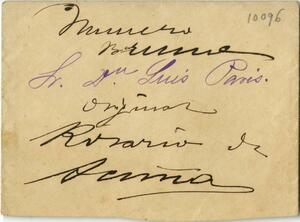 10096
Numero
Sr. Dn Luis Paris.
Original
Rosario de
Acuña